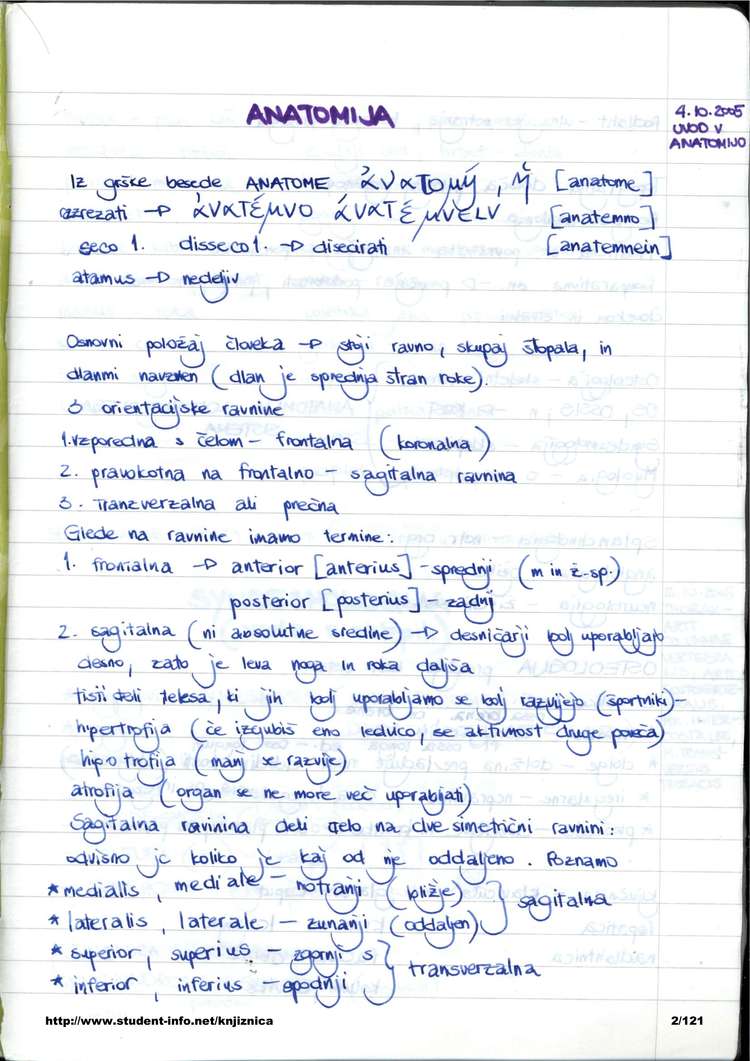 ANATOMIJA
4.10.2005
UVOD V
ANATOMIJO
Iz grške besede ANATOME ἀνατομή, ἡ [anatome]
razrezati → ἀνατέμνο ἀνατέμνειν [anatemno]
seco 1. disseco 1. → disecirati [anatemnein]
atamus → nedeljiv
Osnovni položaj človeka → stoji ravno, skupaj stopala, in
dlanmi navzven (dlan je sprednja stran roke).
3 orientacijske ravnine
1. vzporedna s čelom - frontalna (koronalna)
2. pravokotna na frontalno - sagitalna ravnina
3. Tranzverzalna ali prečna
Glede na ravnine imamo termine:
1. frontalna → anterior [anterius] - sprednji (m in ž-sp.)
posterior [posterius] - zadnj
2. sagitalna (ni absolutne sredine) → desničarji bolj uporabljajo
desno, zato je leva noga in roka daljša
tisti deli telesa, ki jih bolj uporabljamo se bolj razvijejo (športniki) -
hipertrofija (če izgubiš eno ledvico, se aktivnost druge poveča)
hipotrofija (manj se razvije)
atrofija (organ se ne more več uporabljati)
Sagitalna ravinina deli telo na dve simetrični ravnini:
odvisno je koliko je kaj od nje oddaljeno. Poznamo
* medialis, mediale - notranji (bližje) } sagitalna
* lateralis, laterale - zunanji (oddaljen)
* superior, superius - zgornji s } transverzalna
* inferior, inferius - spodnji
http://www.student-info.net/knjiznica 2/121